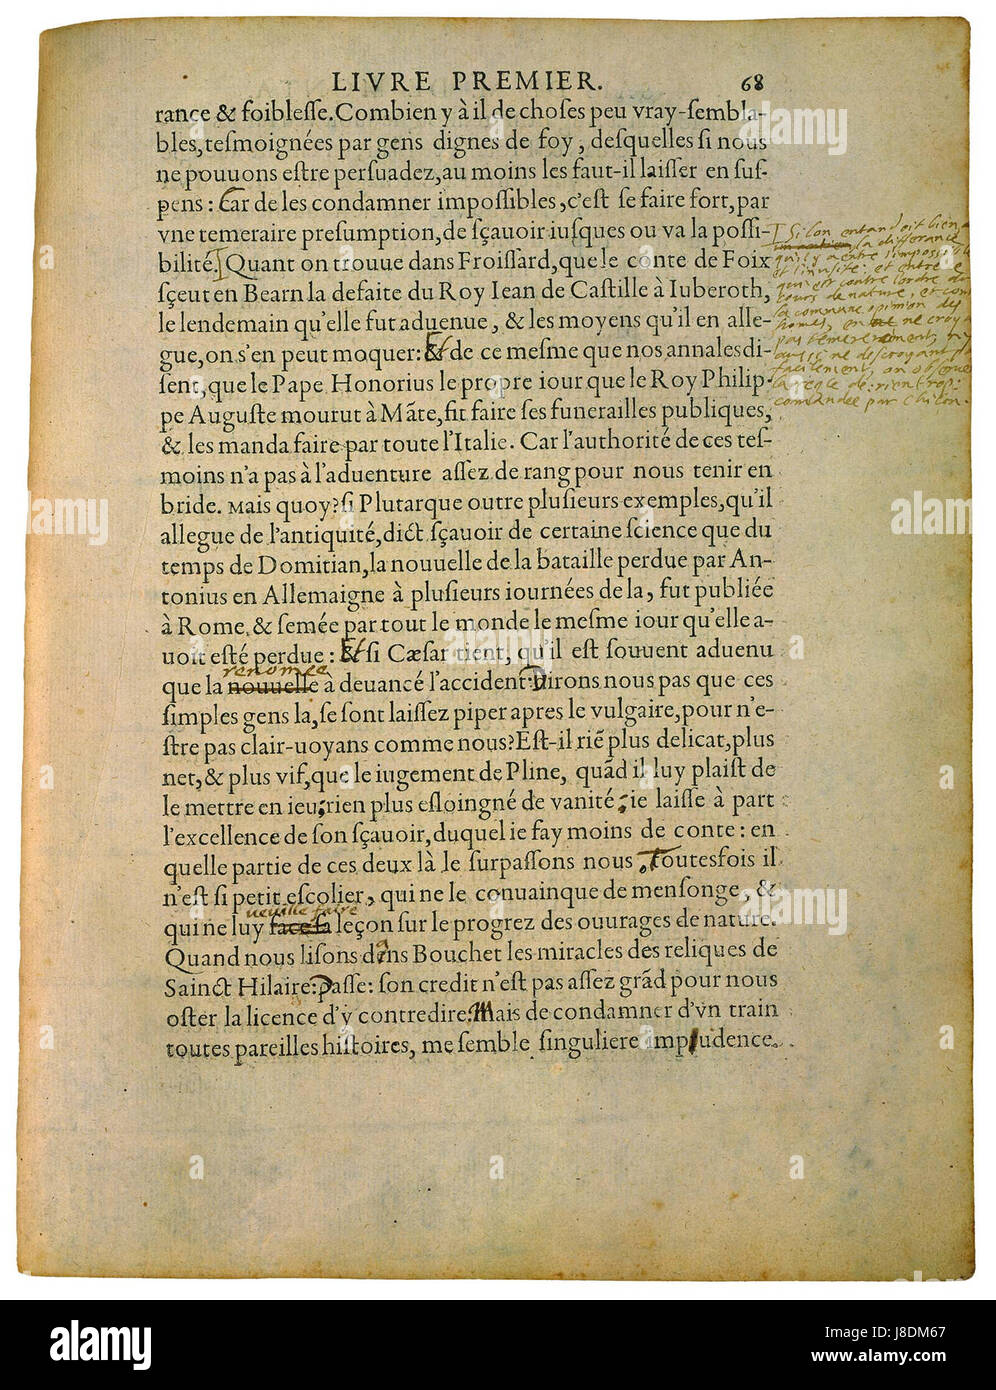 LIVRE PREMIER. 68
rance & foiblesse. Combien y à il de choses peu vray-sembla-
bles, tesmoignées par gens dignes de foy, desquelles si nous
ne pouuons estre persuadez, au moins les faut-il laisser en sus-
pens : Car de les condamner impossibles, c'est se faire fort, par
vne temeraire presumption, de sçauoir iusques ou va la possi-
bilité. [Quant on trouue dans Froissard, que le conte de Foix
sçeut en Bearn la defaite du Roy Iean de Castille à Iuberoth,
le lendemain qu'elle fut aduenue, & les moyens qu'il en alle-
gue, on s'en peut moquer: Et de ce mesme que nos annales di-
sent, que le Pape Honorius le propre iour que le Roy Philip-
pe Auguste mourut à Mãte, fit faire ses funerailles publiques,
& les manda faire par toute l'Italie. Car l'authorité de ces tes-
moins n'a pas à l'aduenture assez de rang pour nous tenir en
bride. Mais quoy? si Plutarque outre plusieurs exemples, qu'il
allegue de l'antiquité, dict sçauoir de certaine science que du
temps de Domitian, la nouuelle de la bataille perdue par An-
tonius en Allemaigne à plusieurs iournées de la, fut publiée
à Rome, & semée par tout le monde le mesme iour qu'elle a-
uoit esté perdue : Et si Cæsar tient, qu'il est souuent aduenu
renomee
que la nouuelle à deuancé l'accident: Dirons nous pas que ces
simples gens la, se sont laissez piper apres le vulgaire, pour n'e-
stre pas clair-uoyans comme nous? Est-il riẽ plus delicat, plus
net, & plus vif, que le iugement de Pline, quãd il luy plaist de
le mettre en ieu; rien plus esloingné de vanité; ie laisse à part
l'excellence de son sçauoir, duquel ie fay moins de conte : en
quelle partie de ces deux là le surpassons nous. Toutesfois il
n'est si petit escolier, qui ne le conuainque de mensonge, &
veuille faire
qui ne luy face sa leçon sur le progrez des ouurages de nature.
Quand nous lisons dans Bouchet les miracles des reliques de
Sainct Hilaire: passe: son credit n'est pas assez grãd pour nous
oster la licence d'y contredire. Mais de condamner d'vn train
toutes pareilles histoires, me semble singuliere impudence.
Si lon entendoit bien
la differance
qu'il y a entre l'impossible
et l'inusite: et entre ce
qui est contre lordre du
cours de nature, et contre
la commune opinion des
homes, en ne croyant
pas temererement, ny
aussi ne descroyant pas
facilement, on observeroit
la regle de: rien trop:
comandee par Chilon.
alamy
alamy
Image ID: J8DM67
www.alamy.com